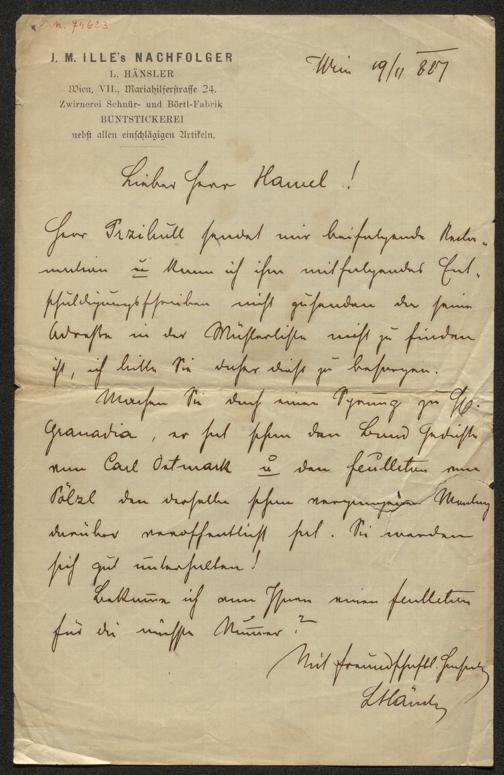 N. 74623
J. M. ILLE's NACHFOLGER
L. HÄNSLER
Wien, VII., Mariahilferstraße 24.
Zwirnerei Schnür- und Börtl-Fabrik
BUNTSTICKEREI
nebst allen einschlägigen Artikeln.
Wien 19/11 887
Lieber Herr Hamel!
Herr Przibull sendet mir beifolgende Recla-
mation u kann ich ihm mitfolgendes Ent-
schuldigungsschreiben nicht zusenden da seine
Adresse in der Müsterliste nicht zu finden
ist, ich bitte Sie daher dies zu besorgen.
Machen Sie doch einen Sprung zu
Granadia, er hat schon den Band Gedichte
von Carl Ostmark u den feulleton von
Pölzl den derselbe schon vergangenen Montag
darüber veröffentlicht hat. Sie werden
sich gut unterhalten!
Bekomme ich von Ihnen einen feulleton
für die nächste Nummer?
Mit freundschaftl.
LHänsler